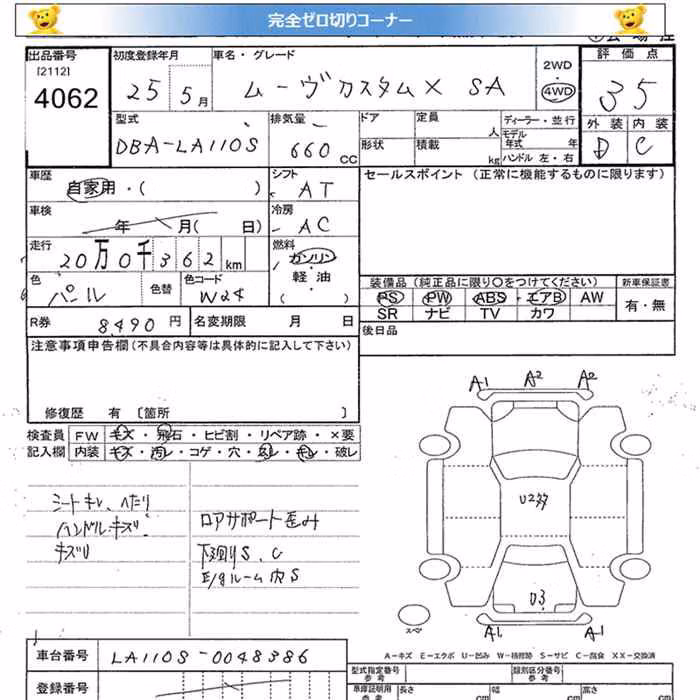 完全ゼロ切りコーナー
出品番号 初度登録年月 車名・グレード 2WD 評価点
[2112]
4062 25 5月 ムーヴカスタムX SA 4WD 35
型式 排気量 ドア 定員 ディーラー・並行 外装 内装
DBA-LA110S 660 CC 人 モデル年式 年 D C
形状 積載 kg ハンドル 左・右
車歴 シフト セールスポイント (正常に機能するものに限ります)
自家用・( ) AT
車検 冷房
年 月( 日) AC
走行 燃料
20万0千362km ガソリン
軽・油
( )
色 色替 色コード 装備品 (純正品に限り〇をつけてください) 新車保証書
パール W24 PS PW ABS エアB AW 有・無
SR ナビ TV カワ
R券 8490円 名変期限 月 日 後日品
注意事項申告欄 (不具合内容等は具体的に記入して下さい)
修復歴 有 〔箇所 〕
検査員 FW キズ・飛石・ヒビ割・リペア跡・×要
記入欄 内装 キズ・汚レ・コゲ・穴・スレ・キレ・破レ
A1 A2
シートキレ、ヘたり
ハンドルキズ
ロアサポート歪み
下廻りS、C
E/gルーム内S
U3
スペア
A1 A1
A-キズ E-エクボ U-凹み W-補修跡 S-サビ C-腐食 XX-交換済
車台番号 LA110S-0048386
型式指定番号 参考 類別区分番号 参考
登録番号
車庫証明用 参考 長さ cm 幅 cm 高さ cm